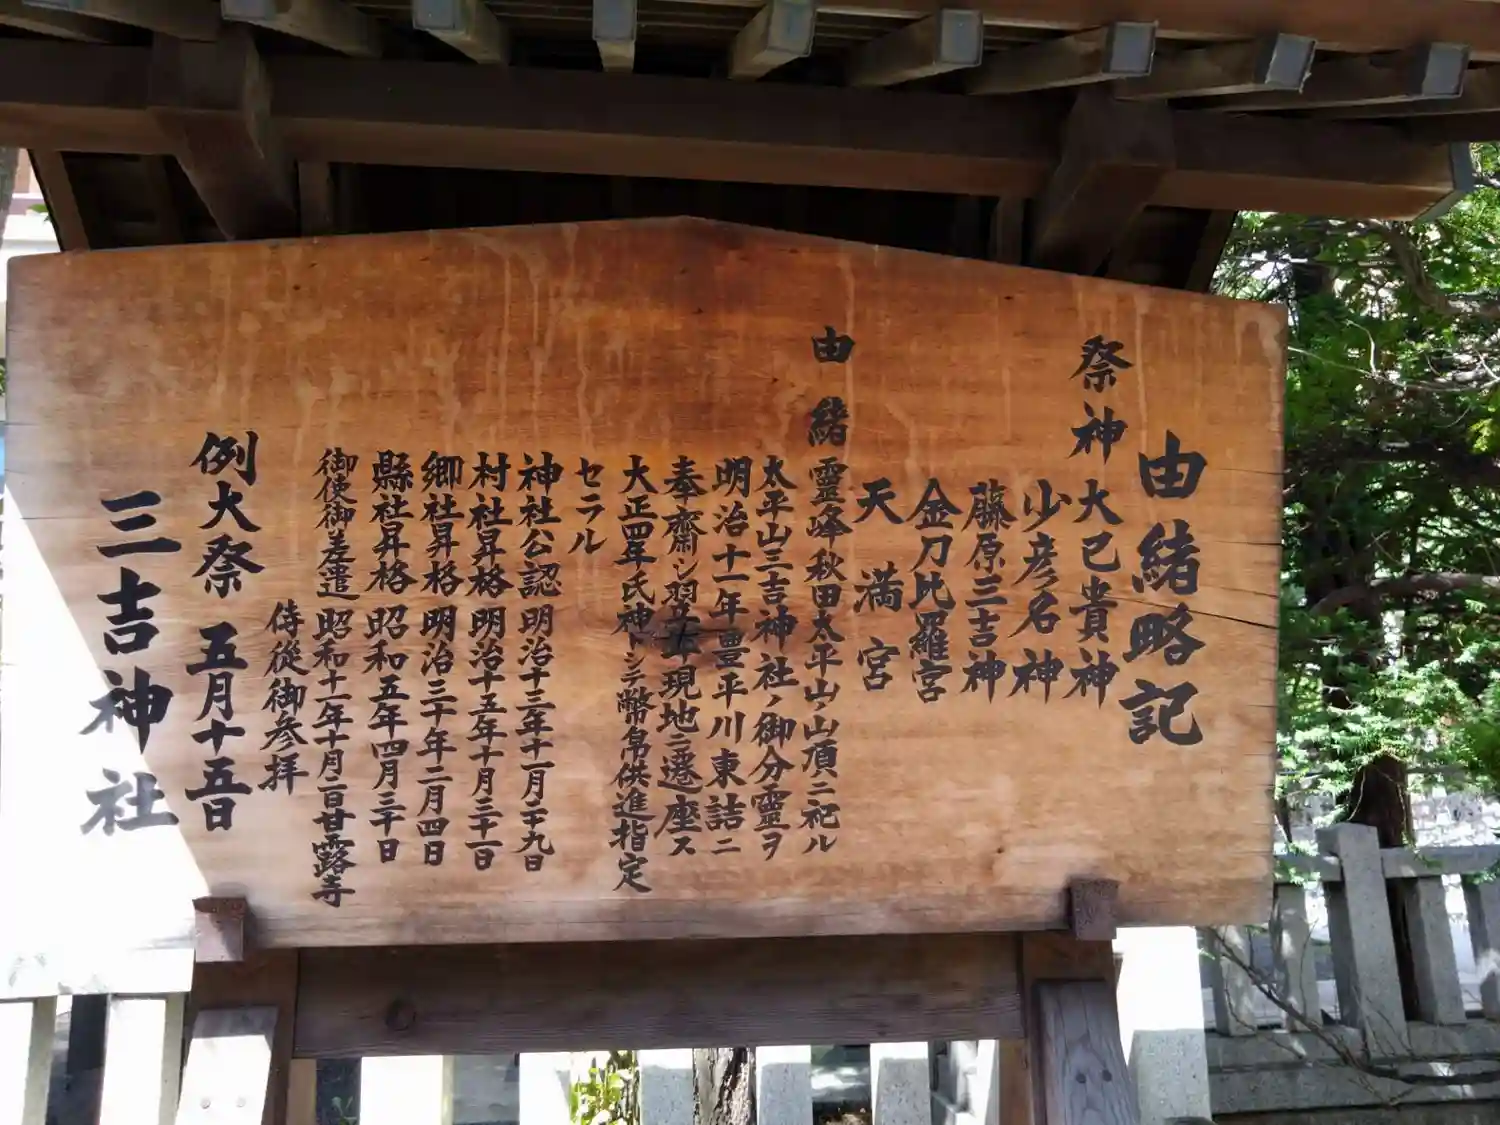 由緒略記
祭神 大已貴神
少彦名神
藤原三吉神
金刀比羅宮
天満宮
由緒 靈峰秋田太平山ノ山頂ニ祀ル
太平山三吉神社ノ御分靈ヲ
明治十一年豊平川東詰ニ
奉齋シ翌年現地ニ遷座ス
大正四年氏神トシテ幣帛供進指定
セラル
神社公認 明治十三年十一月二十九日
村社昇格 明治十五年十月三十一日
郷社昇格 明治三十年二月四日
縣社昇格 昭和五年四月三十日
御使御差遣 昭和十一年十月二日甘露寺
侍従御参拝
例大祭 五月十五日
三吉神社